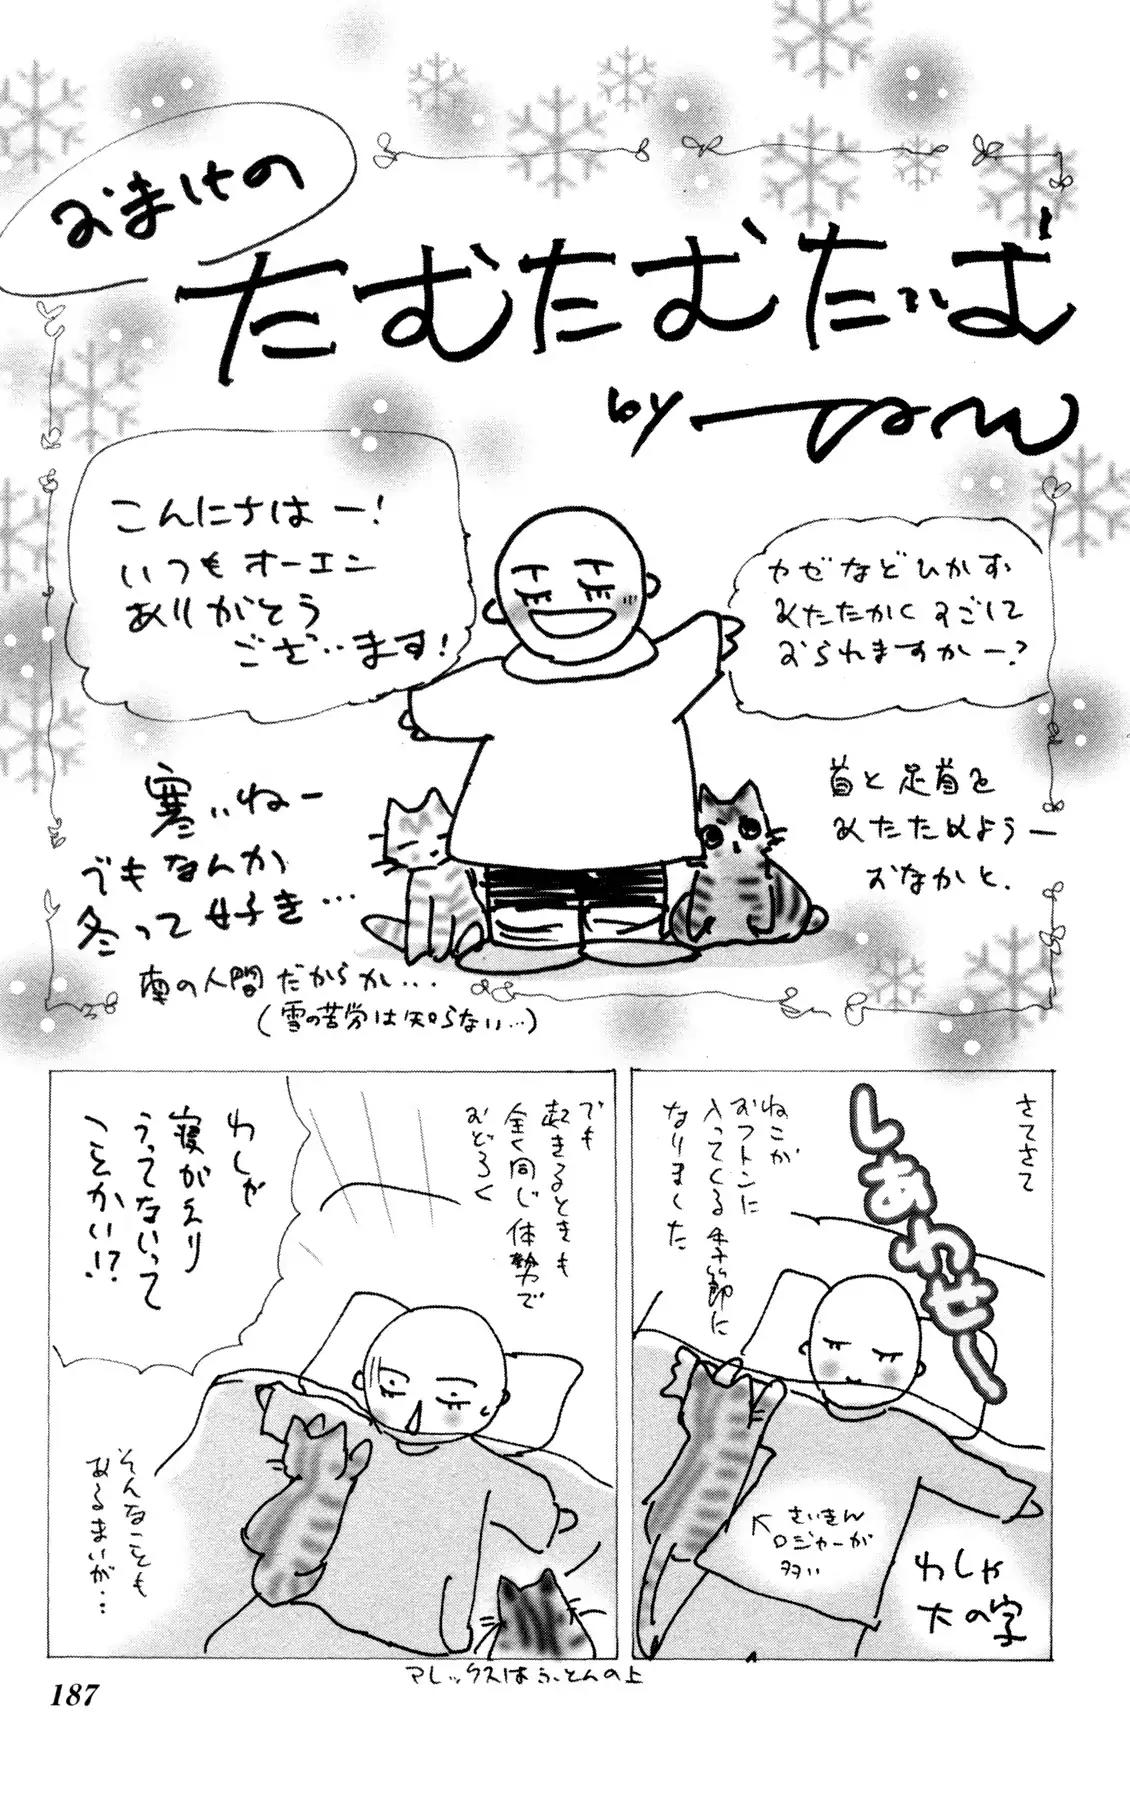 おまけの
たむたむたいむ
by
こんにちはー!
いつもオーエン
ありがとう
ござ‥ます!
カゼなどひかず
あたたかくすごして
おられますかー?
寒いねー
でもなんか
冬って好き…
南の人間だからか…
(雪の苦労は知らない…)
首と足首を
あたためようー
おなかと、
さてさて
しあわせー
ねこが
おフトンに
入ってくる季節に
なりました
さいきん
ロジャーが
多い
わしゃ
大の字
でも
起きるときも
全く同じ体勢で
おどろく
わしゃ
寝がえり
うってないって
ことかい!?
そんなことも
あるまいが…
アレックスはふとんの上
187